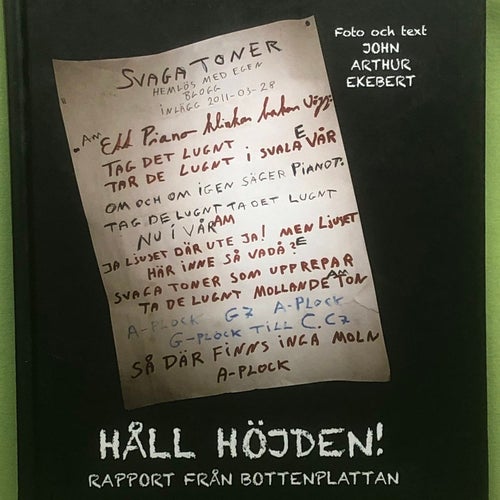 Foto och text
JOHN
ARTHUR
EKEBERT
SVAGA TONER
HEMLÖS MED EGEN
BLOGG
INLÄGG 2011-03-28
AM Ett Piano klickar bakom Vägg.
TAG DET LUGNT E
TAR DE LUGNT I SVALA VÅR
OM OCH OM IGEN SÄGER PIANOT.
TAG DE LUGNT TA DET LUGNT
NU I VÅR AM
JA LJUSET DÄR UTE JA! MEN LJUSET
HÄR INNE SÅ VADÅ? E
SVAGA TONER SOM UPPREPAR
TA DE LUGNT MOLLANDE TON AM
A-PLOCK G7 A-PLOCK
G-PLOCK TILL C. C7
SÅ DÄR FINNS INGA MOLN
A-PLOCK
HÅLL HÖJDEN!
RAPPORT FRÅN BOTTENPLATTAN